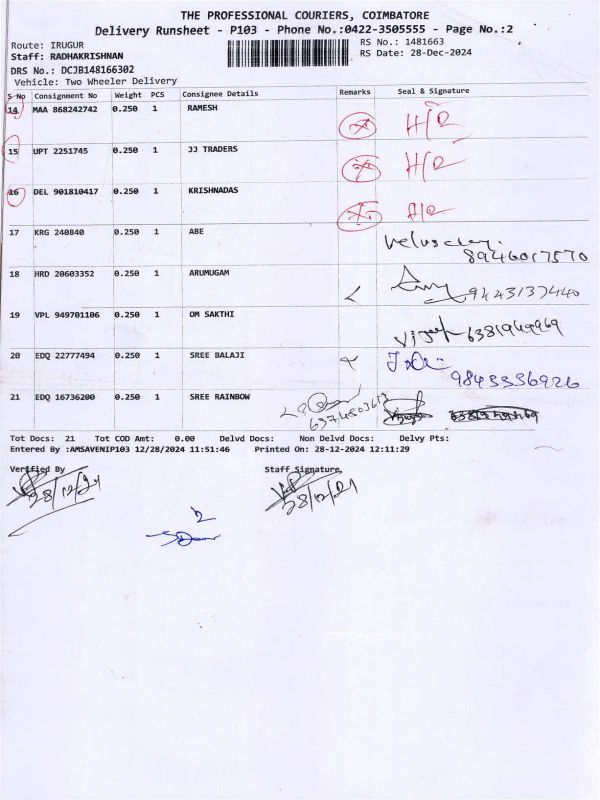 THE PROFESSIONAL COURIERS, COIMBATORE
Delivery Runsheet - P103 - Phone No.:0422-3505555 - Page No.:2
Route: IRUGUR
RS No.: 1481663
Staff: RADHAKRISHNAN
RS Date: 28-Dec-2024
DRS No.: DCJB148166302
Vehicle: Two Wheeler Delivery
S No Consignment No Weight PCS Consignee Details Remarks Seal & Signature
14 MAA 868242742 0.250 1 RAMESH H/R
15 UPT 2251745 0.250 1 JJ TRADERS H/R
16 DEL 901810417 0.250 1 KRISHNADAS H/R
17 KRG 240840 0.250 1 ABE
8946017570
18 HRD 20603352 0.250 1 ARUMUGAM
9443137440
19 VPL 949701106 0.250 1 OM SAKTHI
6381949969
20 EDQ 22777494 0.250 1 SREE BALAJI
9843336926
21 EDQ 16736200 0.250 1 SREE RAINBOW
Tot Docs: 21 Tot COD Amt: 0.00 Delvd Docs: Non Delvd Docs: Delvy Pts:
Entered By :AMSAVENIP103 12/28/2024 11:51:46 Printed On: 28-12-2024 12:11:29
Verified By Staff Signature,
28/12/24 28/12/24
2